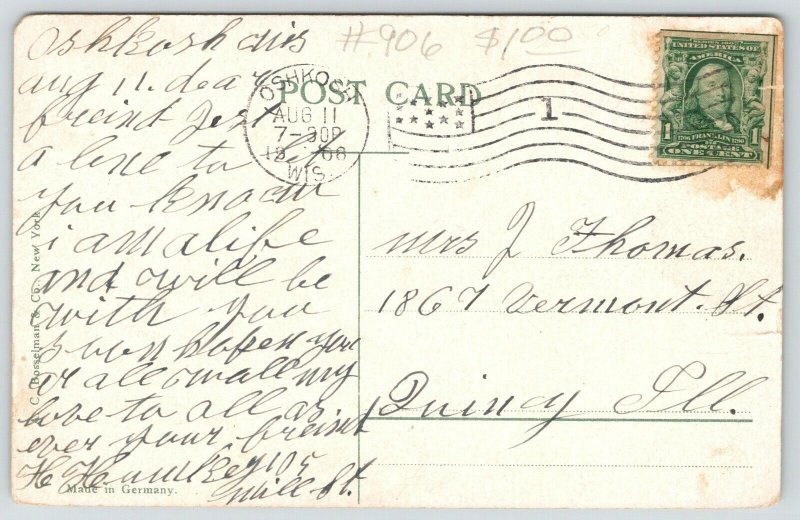 Oshkosh Wis
Aug 11. dear
freint Jest
a line to let
you know
i am alife
and will be
with you
soon hopen you
ar all well my
love to all as
ever your freint
H 105
Mill St.
#906 $1.00
POST CARD
OSHKOSH
AUG 11
7-30P
WIS.
1
UNITED STATES OF AMERICA
1706 FRANKLIN 1790
POSTAGE
1 ONE CENT
Mrs J Thomas.
1867 Vermont. St.
Quincy Ill.
C. Bosselman & Co., New York
Made in Germany.